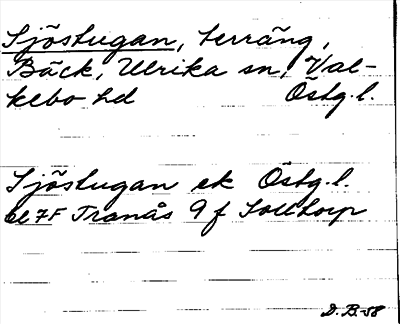 Sjöstugan, terräng,
Bäck, Ulrika sn, Val-
kebo hd Östg.l.
Sjöstugan ek Östg.l.
bl 7F Tranås 9 f Solltorp
D.B.-58